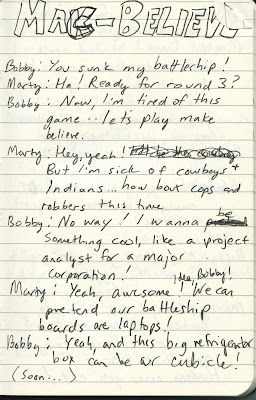 MAKE-BELIEVE
Bobby: You sunk my battleship!
Marty: Ha! Ready for round 3?
Bobby: Naw, I'm tired of this
game.. let's play make
believe.
Marty: Hey, yeah!
But I'm sick of cowboys +
Indians... how bout cops and
robbers this time
Bobby: No way! I wanna be
Something cool, like a project
analyst for a major
corporation!
Marty: Yeah, awesome idea, Bobby! We can
pretend our battleship
boards are laptops!
Bobby: Yeah, and this big refrigerator
box can be our cubicle!
(Soon...)